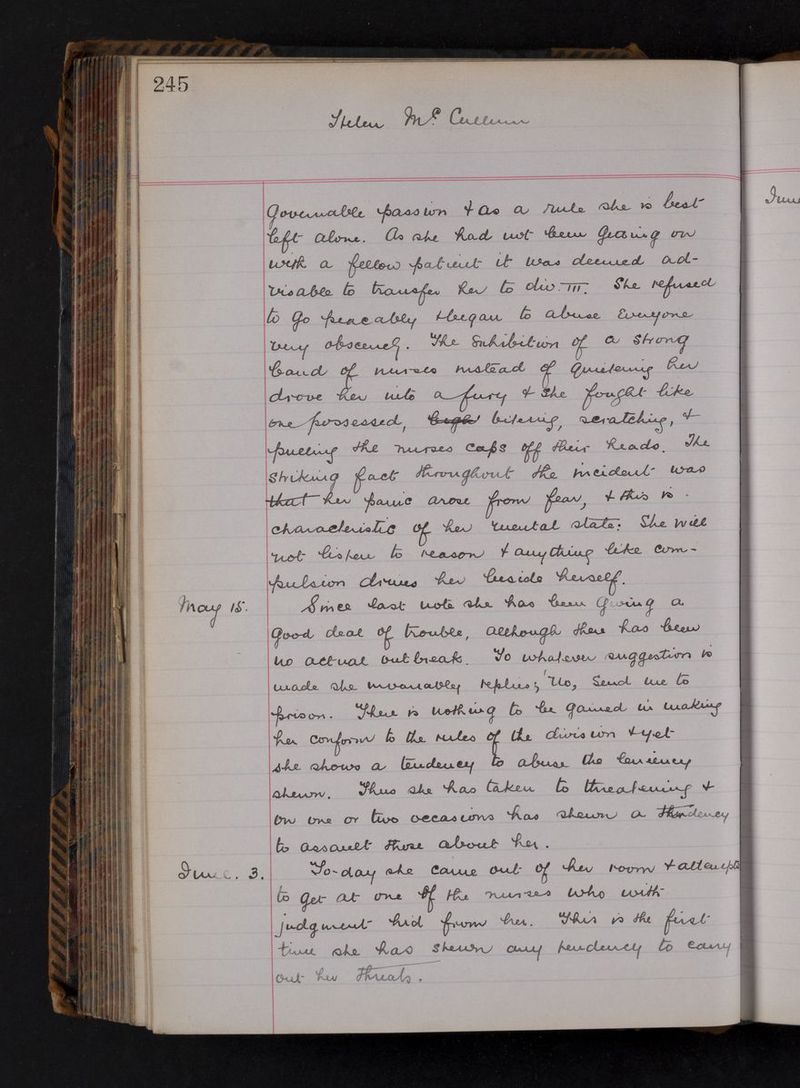 245
Helen McCallum
Governable passion & as a rule she is best
left alone. As she had not been getting on
with a fellow patient it was deemed ad-
visable to transfer her to div. III. She refused
to go peaceably & began to abuse everyone
very obscenely. The exhibition of a strong
band of nurses instead of quietening her
drove her into a fury & she fought like
one possessed, biting, scratching, &
pulling the nurses caps off their heads. The
striking fact throughout the incident was
that her panic arose from fear, & this is
characteristic of her mental state: She will
not listen to reason & anything like com-
pulsion drives her beside herself.
May 15. Since last note she has been giving a
good deal of trouble, although there has been
no actual outbreak. To whatever suggestion is
made she invariably replies; 'No, send me to
prison. There is nothing to be gained in making
her conform to the rules of the division & yet
she shows a tendency to abuse the leniency
shewn. Thus she has taken to threatening &
on one or two occasions has shewn a tendency
to assault those about her.
June. 3. To-day she came out of her room & attempted
to get at one of the nurses who with
judgment hid from her. This is the first
time she has shewn any tendency to carry
out her threats.
June